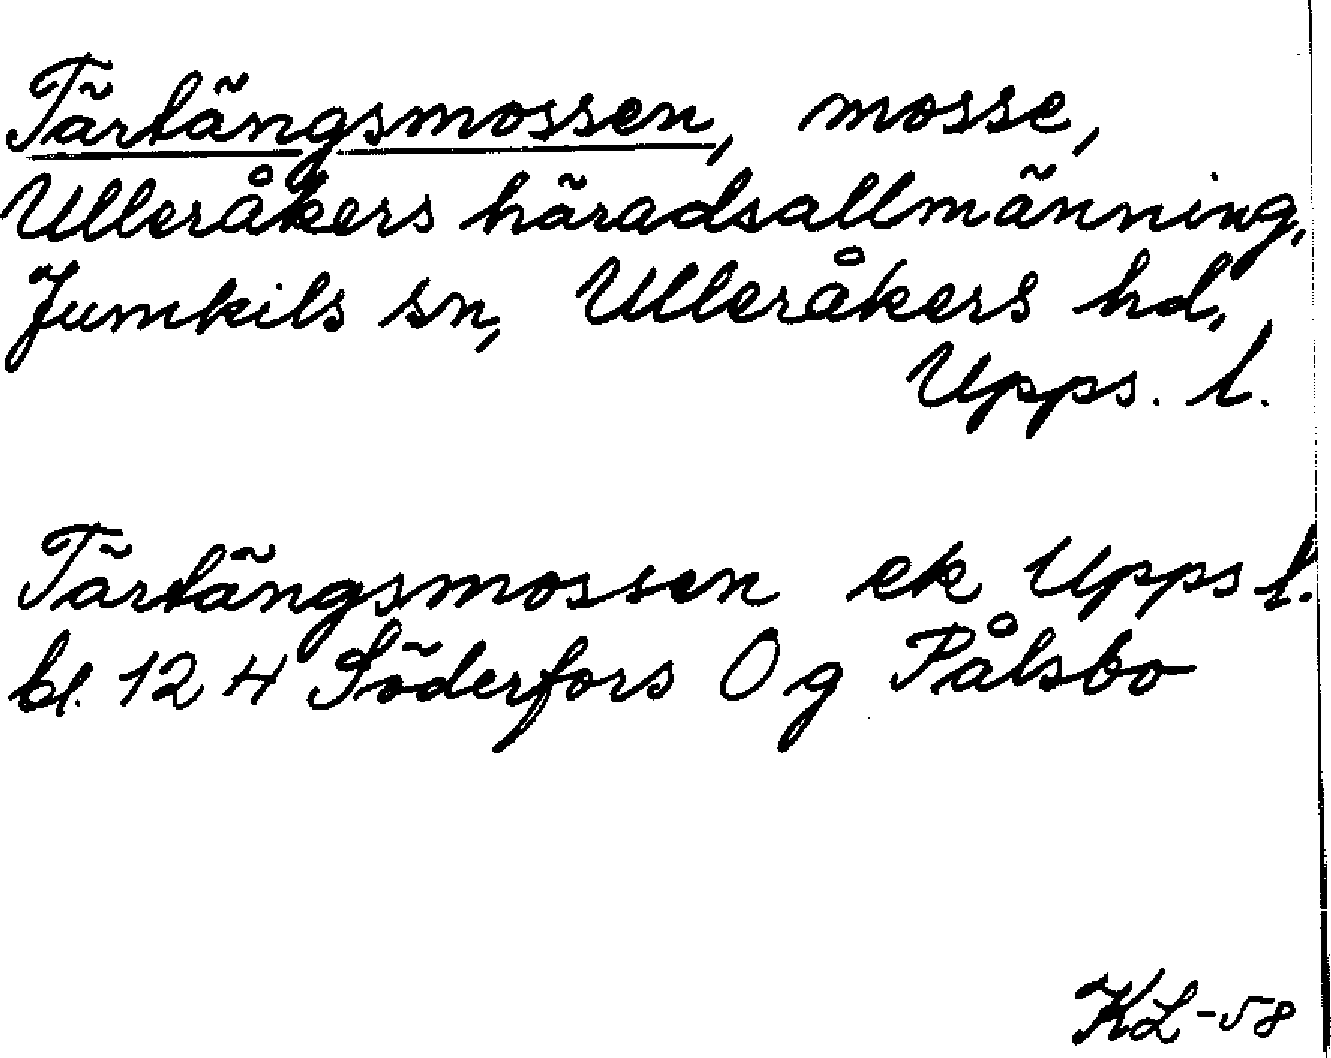 Tärtängsmossen, mosse,
Ulleråkers häradsallmänning,
Jumkils sn, Ulleråkers hd,
Upps. l.
Tärtängsmossen ek Upps l.
bl. 124 Söderfors Og Pålsbo
KL-58